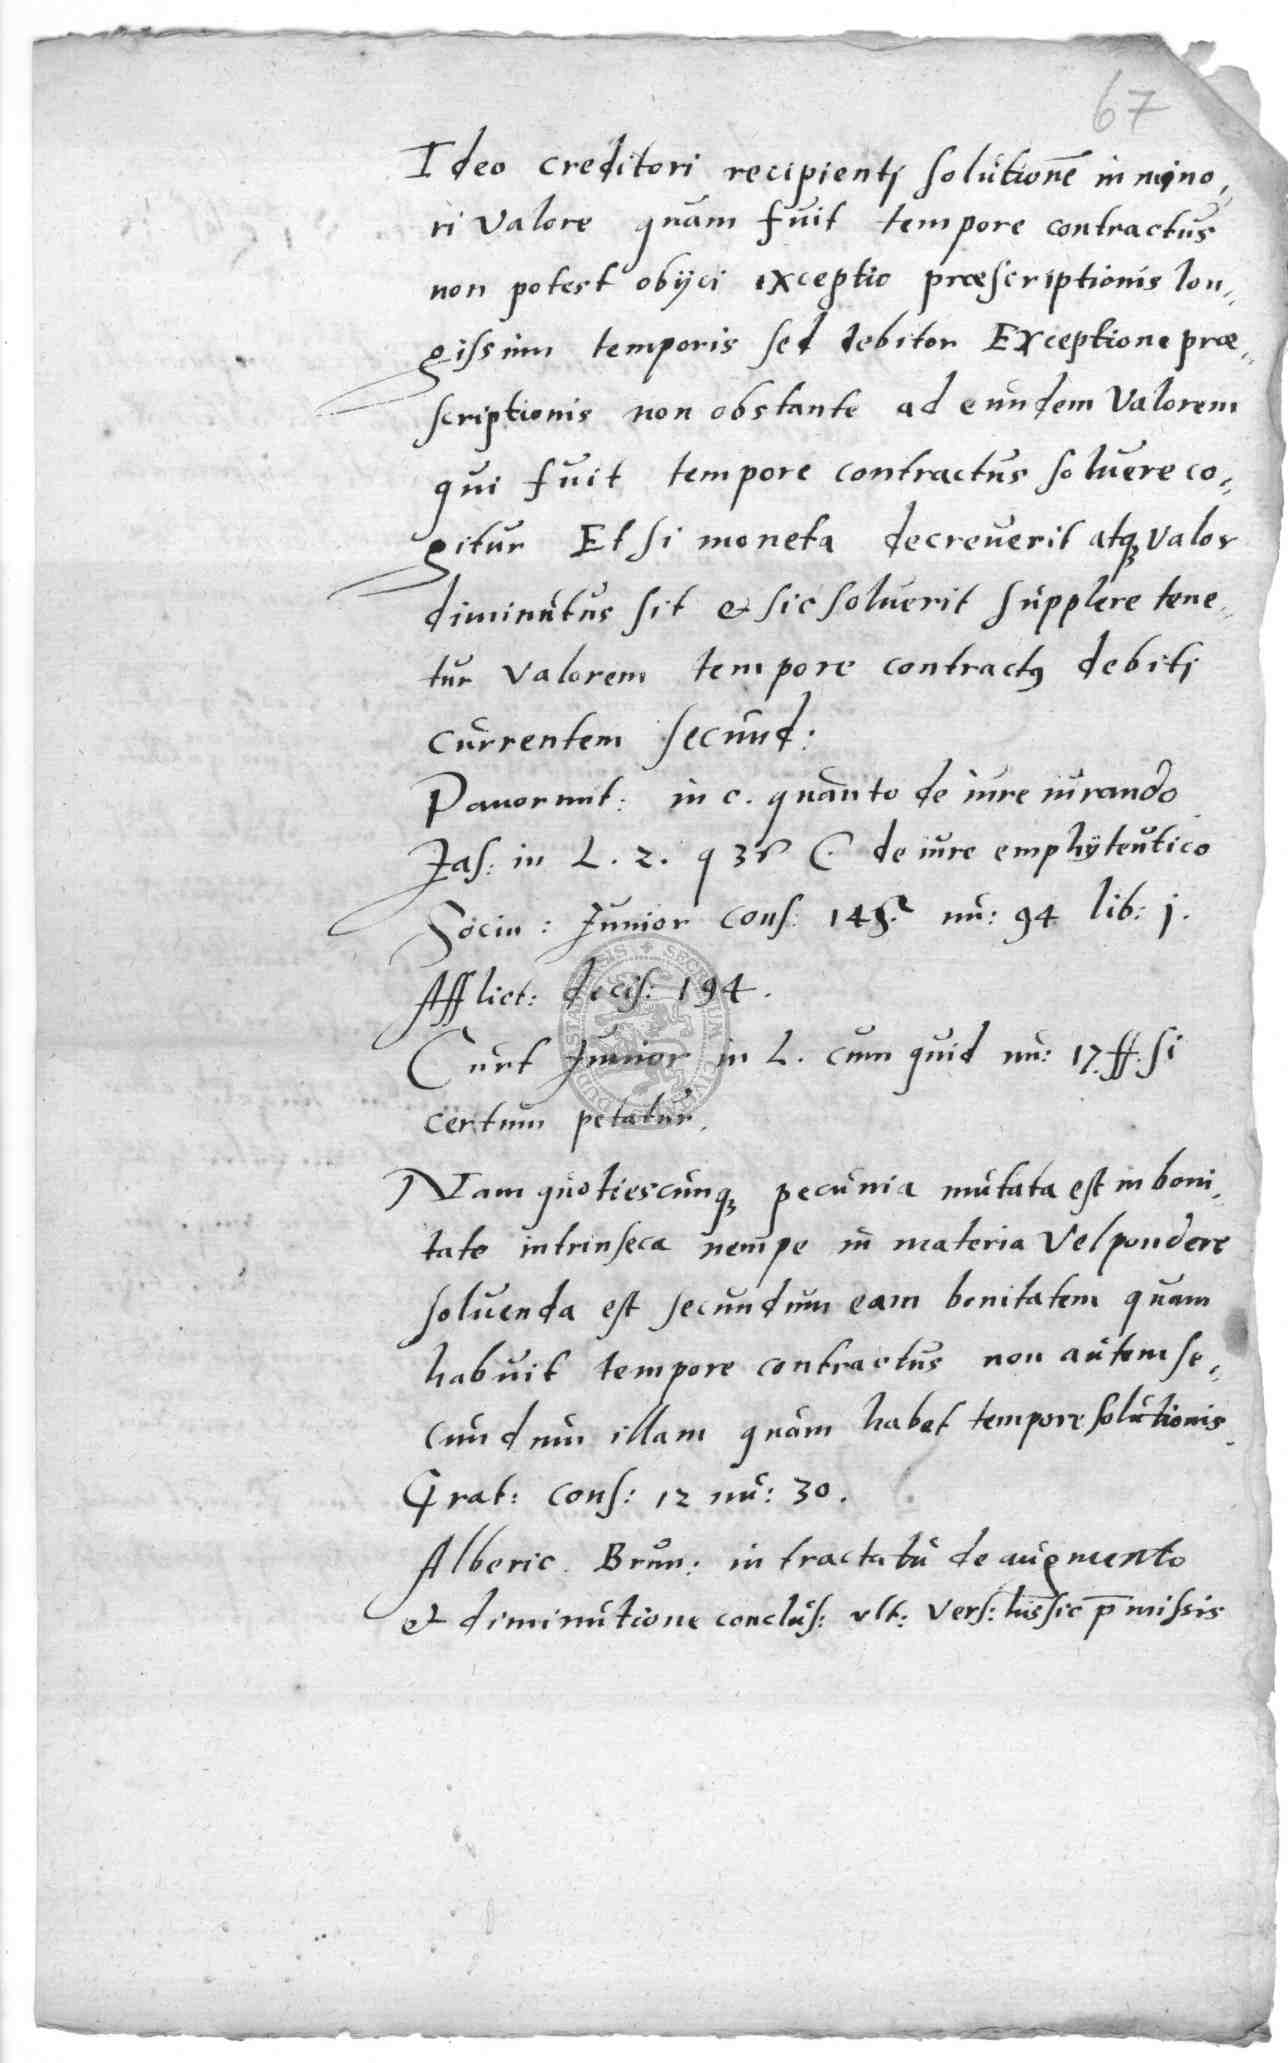 67
Ideo creditori recipienti solutionē in mino„
ri valore quam fuit tempore contractus
non potest obijci exceptio præscriptionis lon„
gissimi temporis sed debitor Exceptione præ„
scriptionis non obstante ad eundem valorem
qui fuit tempore contractus soluere co„
gitur Et si moneta decreuerit atq; valor
diminutus sit & sic soluerit supplere tene„
tur valorem tempore contractꝰ debiti
currentem secund:
Panormit: in c. quanto de iure iurando
Jas: in L. 2. q C. de iure emphÿteutico
Socin: Junior cons: nu: 94 lib: j.
Afflict: decis: 194.
Curt Junior in L. cum quid nu: 17. ff. si
certum petatur.
Nam quotiescunq; pecunia mutata est in boni„
tate intrinseca nempe in materia vel pondere
soluenda est secundum eam bonitatem quam
habuit tempore contractus non autem se„
cundum illam quam habet tempore solutionis.
Grat: cons: 12 nu: 30.
Alberic. Brun: in tractatu de augmento
& diminutione conclus: vlt: vers: sic p̄missis